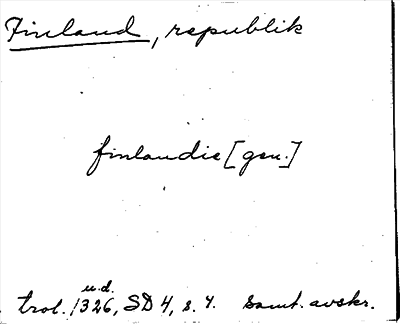 Finland, republik
finlandie [gen.]
u.d.
trol. 1326, SD 4, s. 4. Samt. avskr.